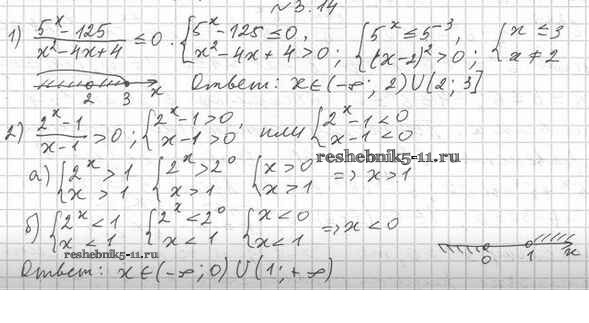 №3.14
1) (5^x-125)/(x²-4x+4) ≤ 0. {5^x-125≤0, x²-4x+4>0; {5^x≤5^-3, (x-2)²>0; {x≤3 x≠2
2 3 x Ответ: x∈(-∞; 2)U(2; 3]
2) (2^x-1)/(x-1) >0; {2^x-1>0, x-1>0; или {2^x-1<0 x-1<0
reshebnik5-11.ru
а) {2^x>1 x>1 {2^x>2^0 x>1 {x>0 x>1 => x>1
б) {2^x<1 x<1 {2^x<2^0 x<1 {x<0 x<1 => x<0
0 1 x
reshebnik5-11.ru
Ответ: x∈(-∞;0)U(1;+∞)